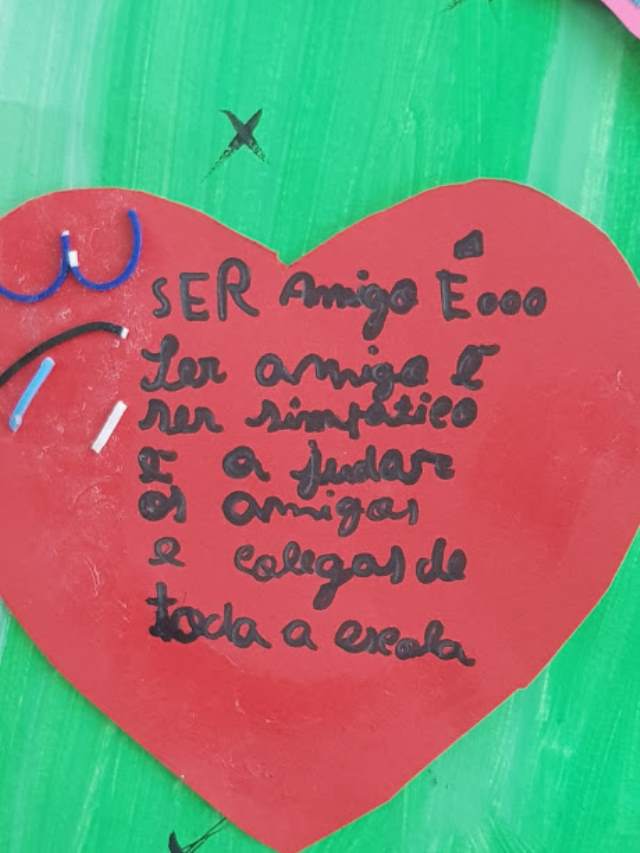 SER Amigo É...
Ser amigo é
ser simpático
é a judar
os amigos
e colegas de
toda a escola